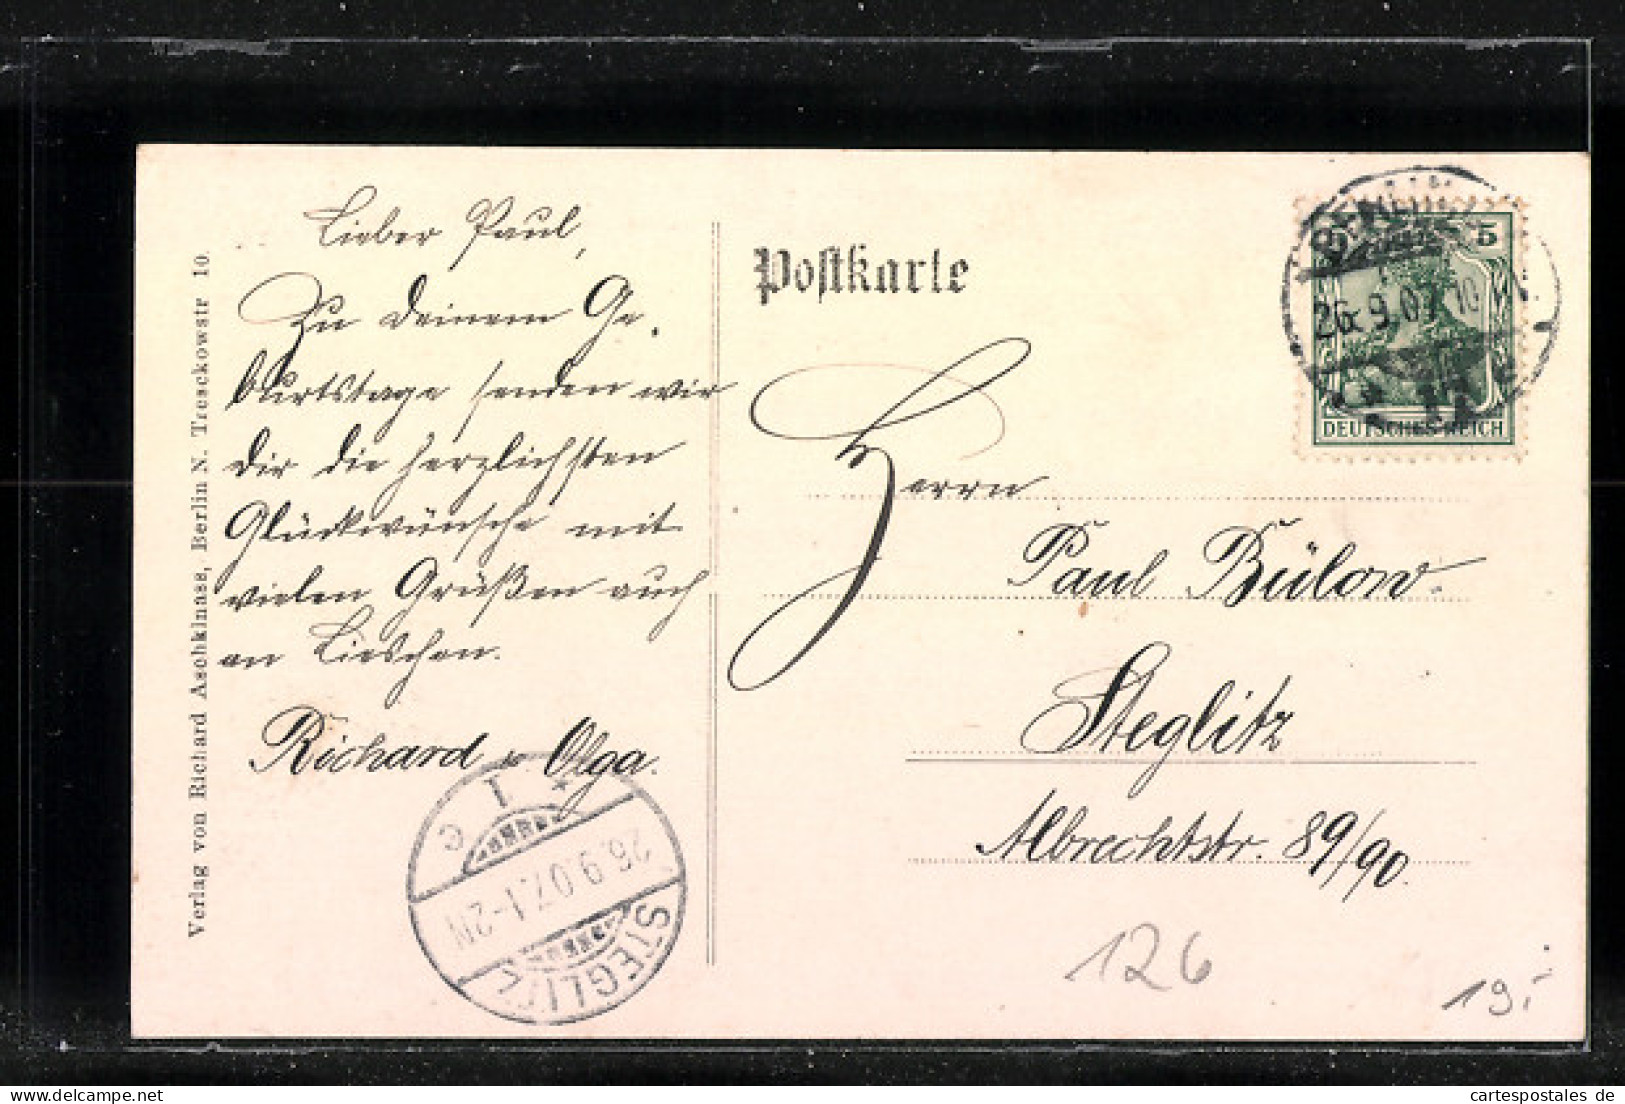 Lieber Paul,
Zu deinem Ge-
burtstage senden wir
dir die herzlichsten
Glückwünsche mit
vielen Grüßen auch
an Lieschen.
Richard u Olga.
Verlag von Richard Aschkinass, Berlin N. Tresckowstr 10.
STEGLITZ
26.9.07.1-2N
* 1 c
Postkarte
5
26. 9. 07 10
DEUTSCHES REICH
Herrn
Paul Bülow.
Steglitz
Albrechtstr. 89/90.
126
19,-
cartespostales de